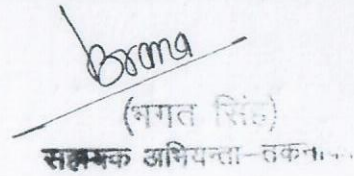 (भगत सिंह)
सहायक अभियन्ता-तकनी